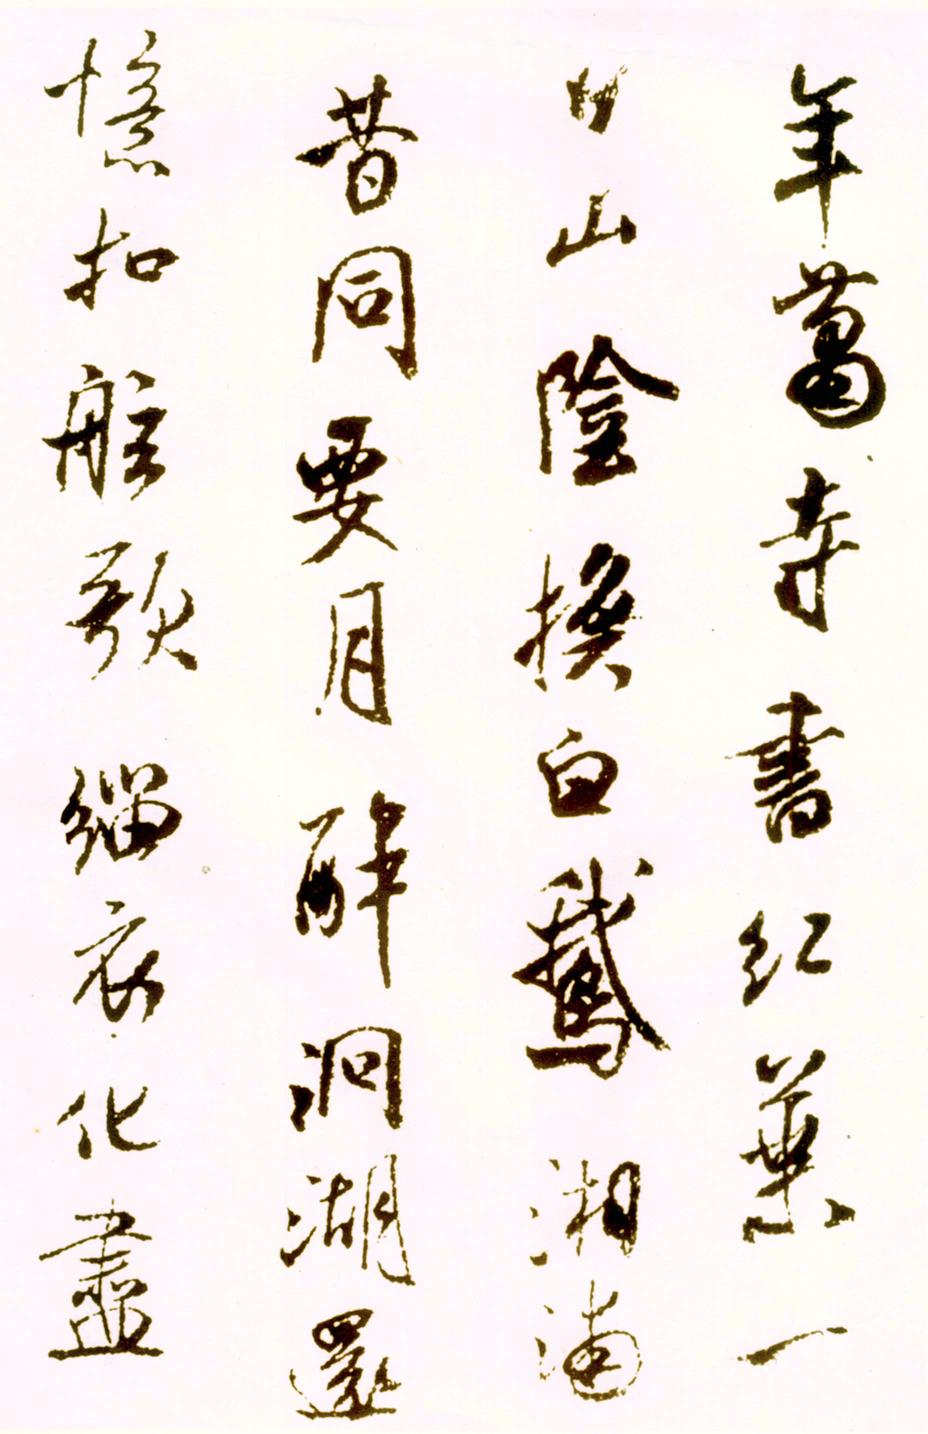 年蕭寺書紅葉一
日山陰換白鵝湘浦
昔同要月醉洞湖還
憶扣舷歌緇衣化盡